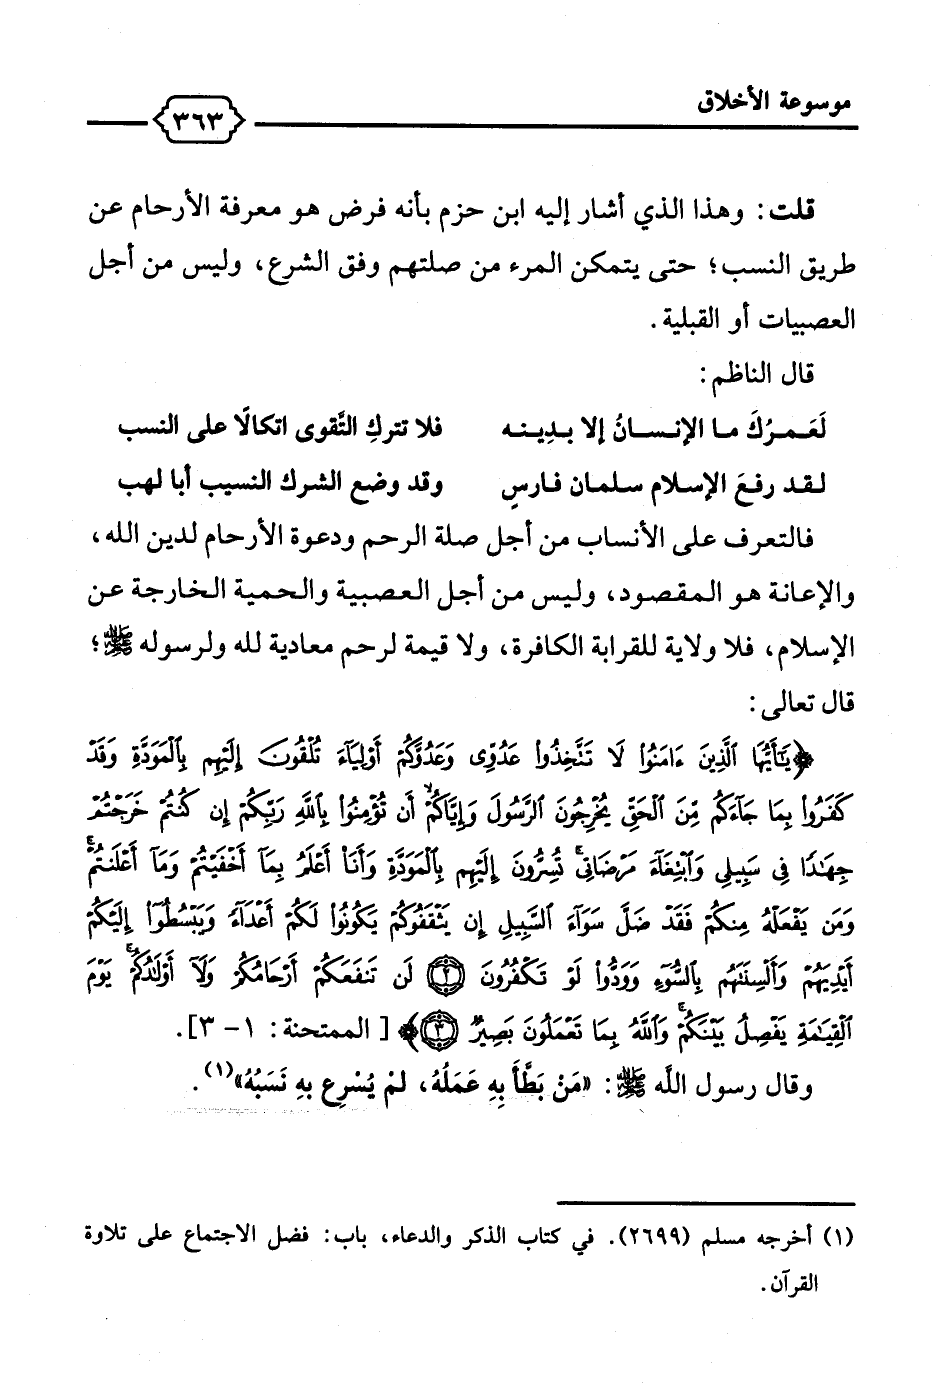 موسوعة الأخلاق
٣٦٣
قلت: وهذا الذي أشار إليه ابن حزم بأنه فرض هو معرفة الأرحام عن
طريق النسب؛ حتى يتمكن المرء من صلتهم وفق الشرع، وليس من أجل
العصبيات أو القبلية.
قال الناظم:
لَعَمرُكَ ما الإنسانُ إلا بدِينه فلا تتركِ التَّقوى اتكالًا على النسب
لقد رفعَ الإسلام سلمان فارسٍ وقد وضع الشرك النسيب أبا لهب
فالتعرف على الأنساب من أجل صلة الرحم ودعوة الأرحام لدين الله،
والإعانة هو المقصود، وليس من أجل العصبية والحمية الخارجة عن
الإسلام، فلا ولاية للقرابة الكافرة، ولا قيمة لرحم معادية لله ولرسوله ﷺ؛
قال تعالى:
﴿يَٰٓأَيُّهَا ٱلَّذِينَ ءَامَنُوا۟ لَا تَتَّخِذُوا۟ عَدُوِّى وَعَدُوَّكُمْ أَوْلِيَآءَ تُلْقُونَ إِلَيْهِم بِٱلْمَوَدَّةِ وَقَدْ
كَفَرُوا۟ بِمَا جَآءَكُم مِّنَ ٱلْحَقِّ يُخْرِجُونَ ٱلرَّسُولَ وَإِيَّاكُمْ ۙ أَن تُؤْمِنُوا۟ بِٱللَّهِ رَبِّكُمْ إِن كُنتُمْ خَرَجْتُمْ
جِهَٰدًا فِى سَبِيلِى وَٱبْتِغَآءَ مَرْضَاتِى ۚ تُسِرُّونَ إِلَيْهِم بِٱلْمَوَدَّةِ وَأَنَا۠ أَعْلَمُ بِمَآ أَخْفَيْتُمْ وَمَآ أَعْلَنتُمْ ۚ
وَمَن يَفْعَلْهُ مِنكُمْ فَقَدْ ضَلَّ سَوَآءَ ٱلسَّبِيلِ إِن يَثْقَفُوكُمْ يَكُونُوا۟ لَكُمْ أَعْدَآءً وَيَبْسُطُوٓا۟ إِلَيْكُمْ
أَيْدِيَهُمْ وَأَلْسِنَتَهُم بِٱلسُّوٓءِ وَوَدُّوا۟ لَوْ تَكْفُرُونَ ٢ لَن تَنفَعَكُمْ أَرْحَامُكُمْ وَلَآ أَوْلَٰدُكُمْ ۚ يَوْمَ
ٱلْقِيَٰمَةِ يَفْصِلُ بَيْنَكُمْ ۚ وَٱللَّهُ بِمَا تَعْمَلُونَ بَصِيرٌ ٣﴾ [الممتحنة: ١ - ٣].
وقال رسول الله ﷺ: «مَنْ بَطَّأَ بِهِ عَمَلُهُ، لمْ يُسْرِع بِهِ نَسَبُهُ»(١).
(١) أخرجه مسلم (٢٦٩٩). في كتاب الذكر والدعاء، باب: فضل الاجتماع على تلاوة
القرآن.